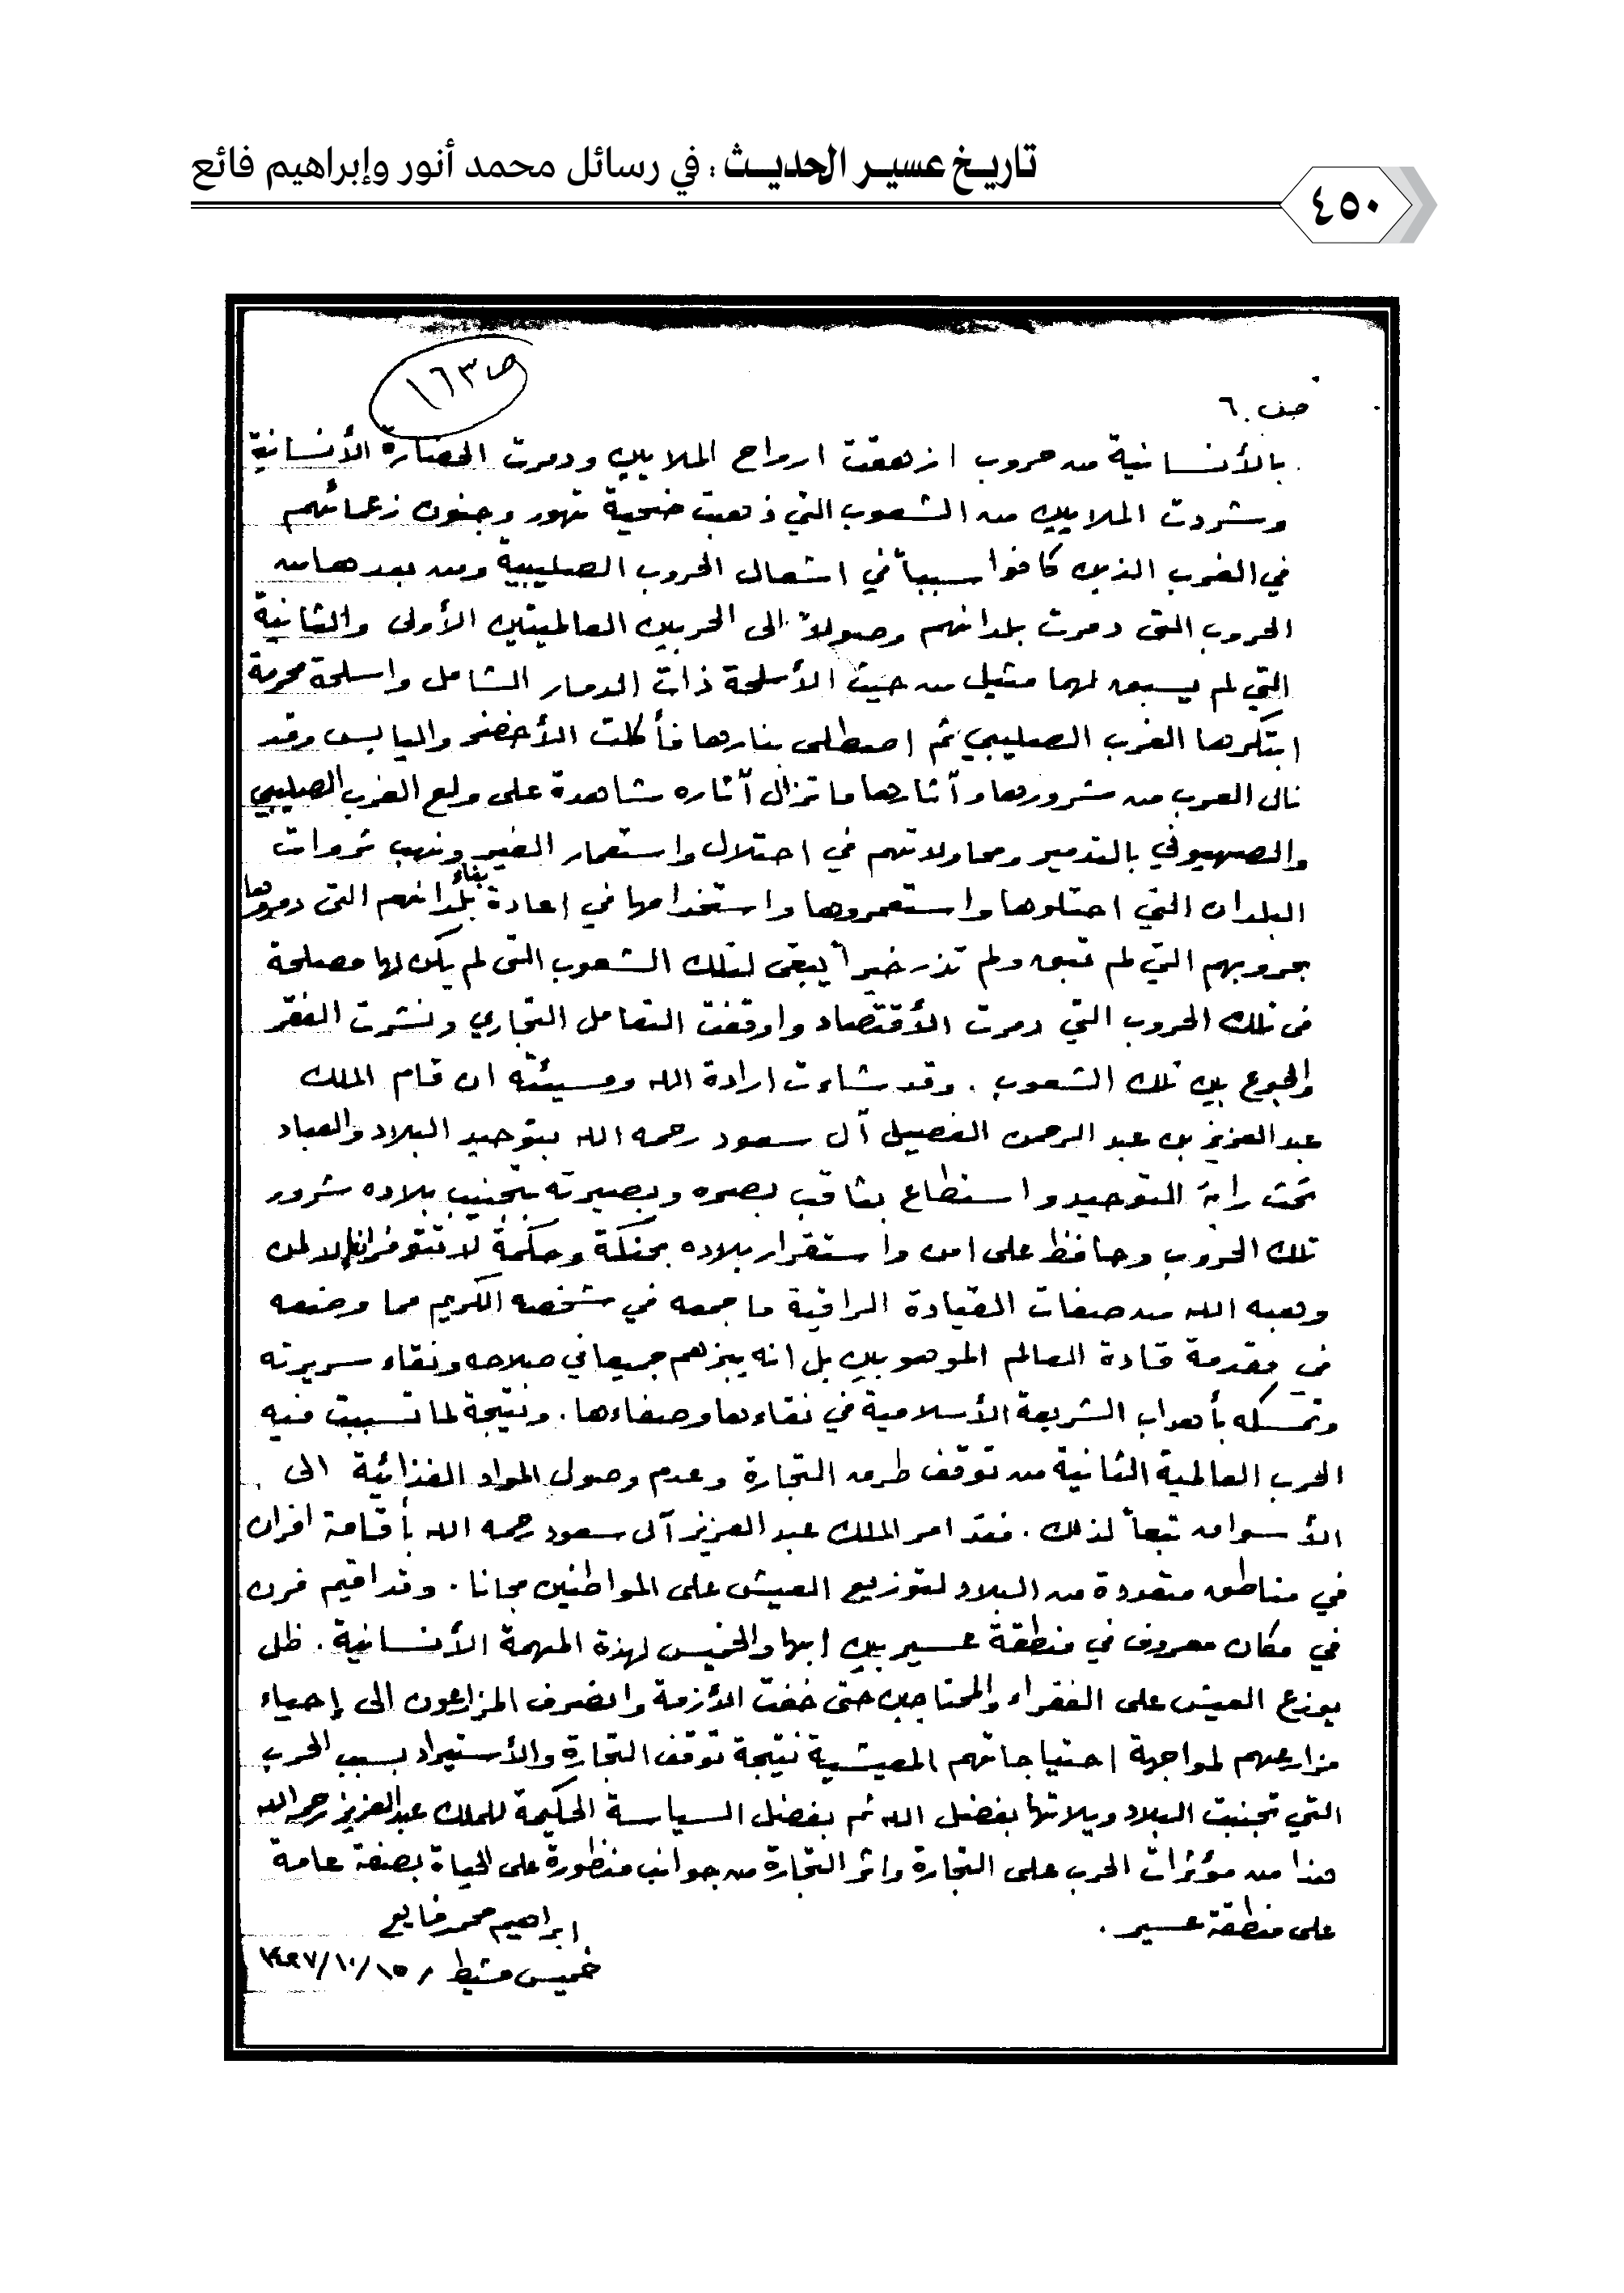 تاريخ عسير الحديث : في رسائل محمد أنور وإبراهيم فائع
٤٥٠
ص ١٦٣
صف ٦
بالأنسانية من حروب ازهقت ارواح الملايين ودمرت الحضارة الأنسانية
وشردت الملايين من الشعوب التي ذهبت ضحية تهور وجنون زعمائهم
في الغرب الذين كانوا سبباً في اشعال الحروب الصليبية ومن بعدها من
الحروب التى دمرت بلدانهم وصولاً الى الحربين العالميتين الأولى والثانية
التي لم يسبق لهما مثيل من حيث الأسلحة ذات الدمار الشامل واسلحة محرمة
ابتكرها الغرب الصليبي ثم اصطلى بنارها فأكلت الأخضر واليابس وقد
نال العرب من شرورها وآثارها ما تزال آثاره شاهدة على ولع الغرب الصليبي
والصهيوني بالتدمير ومحاولاتهم في احتلال واستعمار الغير ونهب ثروات
البلدان التي احتلوها واستعمروها واستخدامها في إعادة بناء بلدانهم التى دمروها
بحروبهم التي لم تبق ولم تذر خيراً يبقى لتلك الشعوب التى لم يكن لها مصلحة
في تلك الحروب التي دمرت الأقتصاد واوقفت التعامل التجاري ونشرت الفقر
والجوع بين تلك الشعوب . وقد شاءت ارادة الله ومشيئته ان قام الملك
عبد العزيز بن عبد الرحمن الفصيل آل سعود رحمه الله بتوحيد البلاد والعباد
تحت راية التوحيد واستطاع بثاقب بصره وبصيرته بتجنيب بلاده شرور
تلك الحروب وحافظ على امن واستقرار بلاده بحنكة وحكمة لا تتوفران إلا لمن
وهبه الله من صفات القيادة الراقية ما جمعه في شخصه الكريم مما وضعه
في مقدمة قادة العالم الموهوبين بل انه يبزهم جميعا في صلاحه ونقاء سريرته
وتمسكه بأهداب الشريعة الأسلامية في نقاءها وصفاءها . ونتيجة لما تسببت فيه
الحرب العالمية الثانية من توقف طرق التجارة وعدم وصول المواد الغذائية الى
الأسواق تبعاً لذلك . فقد امر الملك عبد العزيز آل سعود رحمه الله بأقامة افران
في مناطق متعددة من البلاد لتوزيع العيش على المواطنين مجانا . وقد اقيم فرن
في مكان معروف في منطقة عسير بين ابها والخميس لهذة المهمة الأنسانية . ظل
يوزع العيش على الفقراء والمحتاجين حتى خفت الأزمة وانصرف المزارعون الى إحياء
مزارعهم لمواجهة احتياجاتهم المعيشية نتيجة توقف التجارة والأستيراد بسبب الحرب
التي تجنبت البلاد ويلاتها بفضل الله ثم بفضل السياسة الحكيمة للملك عبد العزيز رحمه الله
هذا من مؤثرات الحرب على التجارة واثر التجارة من جوانب منظورة على الحياة بصفة عامة
على منطقة عسير .
ابراهيم محمد فايع
خميس مشيط / ١٤٢٧/١٠/١٥